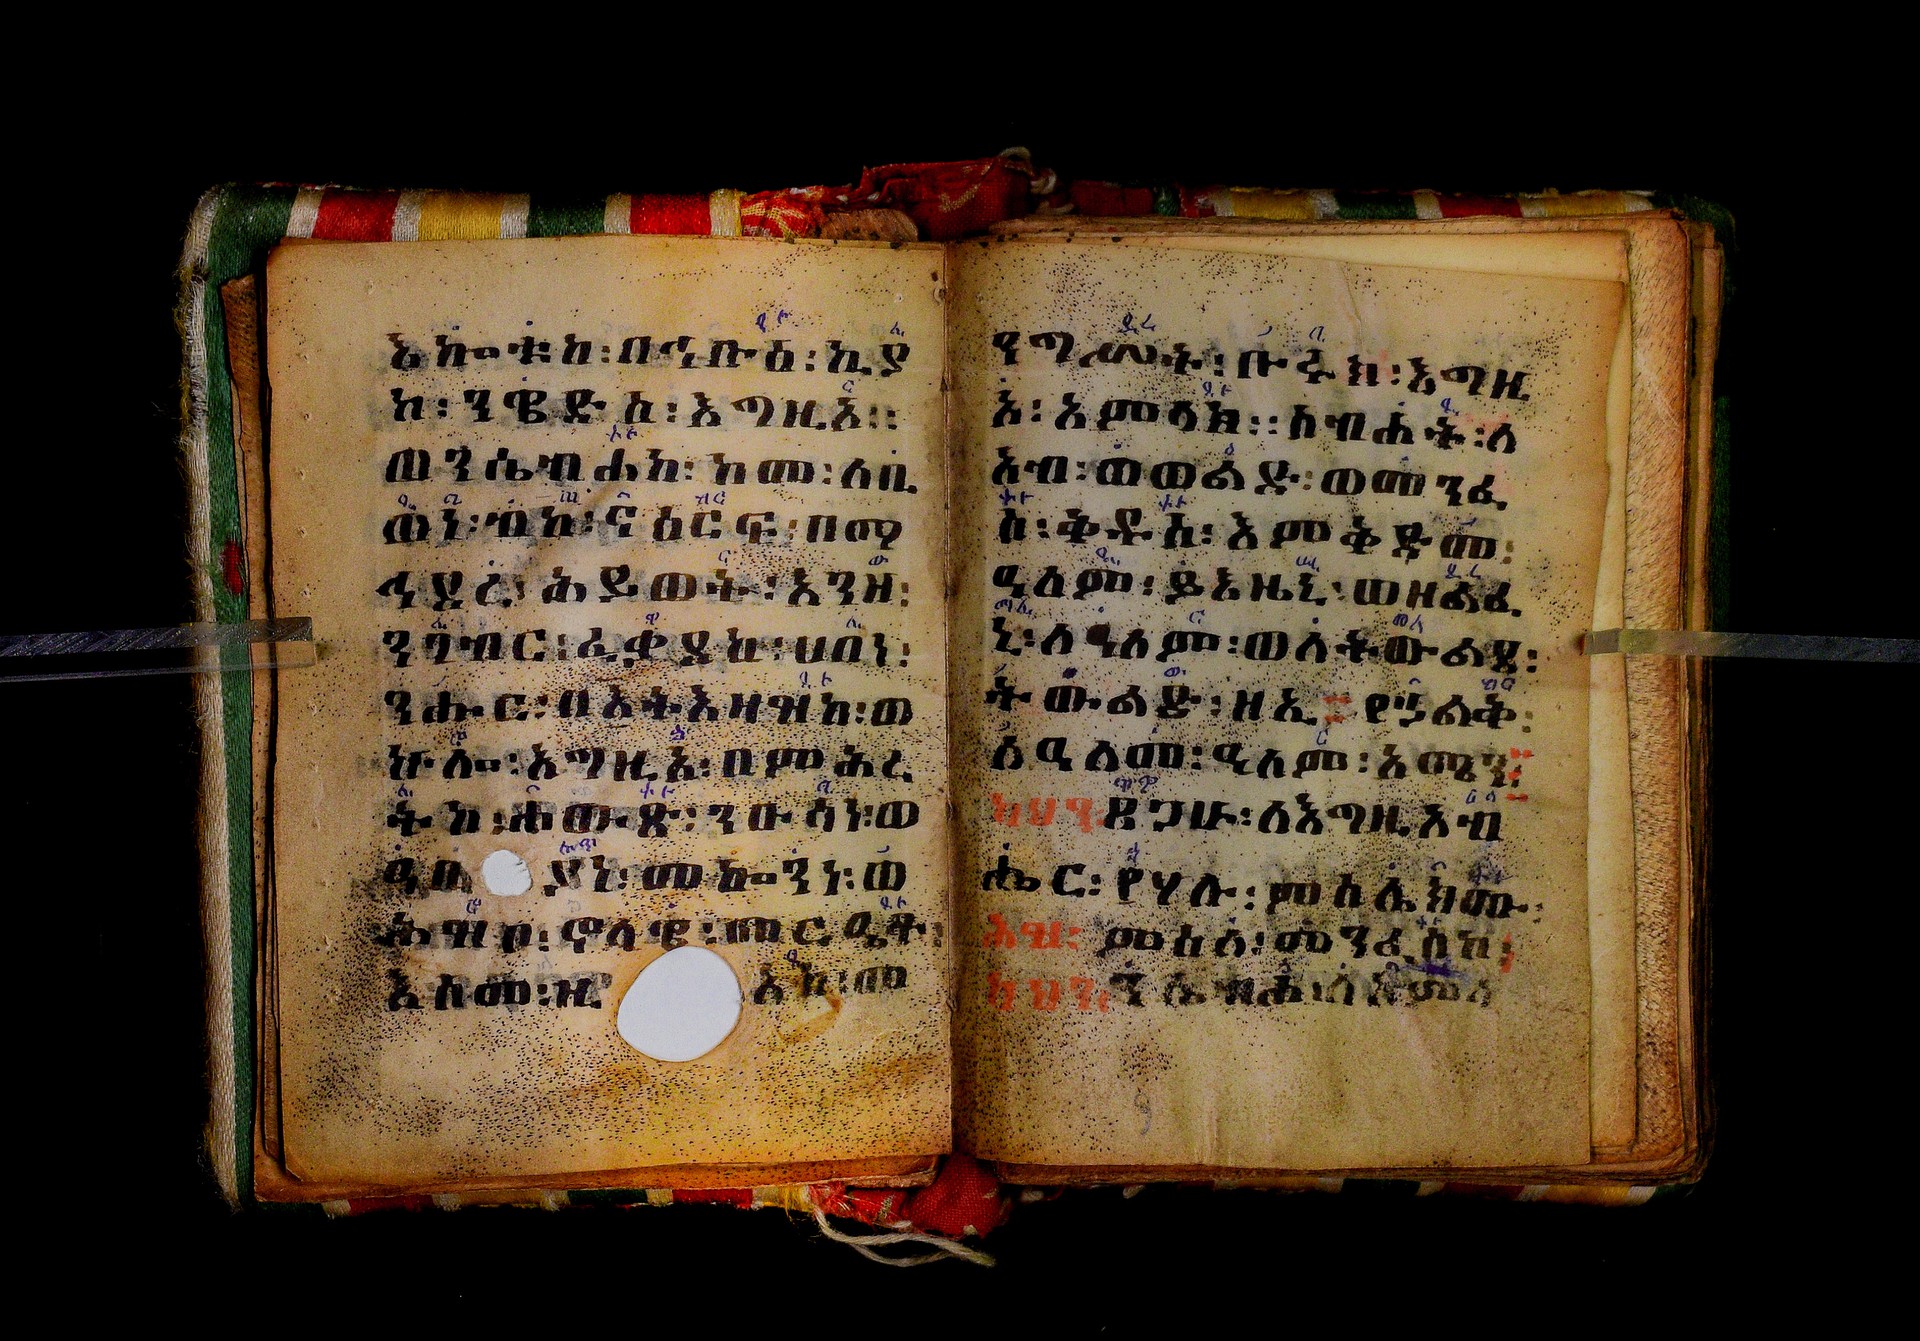 እኩ፡ቱከ፡በዔቡሰ፡ኪያ
ከ፡ንዌድሰ፡እግዚኦ።
ወንሴብሐከ፡ከመ፡ለቢ
ጠነ፡ብከ፡ናዕርፍ፡በማ
ኅደረ፡ሕይወት፡እንዘ፡
ንገብር፡ፈቃደከ፡ሀበነ፡
ንሑር፡በእትእዛዝከ፡ወ
ኵሎ፡እግዚኦ፡በምሕረ
ትከ፡ሐውጽ፡ንኡሳነ፡ወ
ዐቢያነ፡መኰንነ፡ወ
ሕዝበ፡ኖላዌ፡መርዔተ፡
እስመ፡ዚአከ፡መ
ንግሥት፡ቡሩክ፡እግዚ
አ፡አምላክ።ስብሐት፡ለ
አብ፡ወወልድ፡ወመንፈ
ስ፡ቅዱስ፡እምቅድመ፡
ዓለም፡ይእዜኒ፡ወዘልፈ
ኒ፡ለዓለም፡ወለትውልደ፡
ትውልድ፡ዘኢየኃልቅ፡
ለዓለመ፡ዓለም፡አሜን፡
ካህን፡ጸጋሁ፡ለእግዚአብ
ሔር፡የሃሉ፡ምስሌክሙ፡
ሕዝ፡ምስለ፡መንፈስከ፡
ካህን፡ንሴብሖ፡ለአምላ